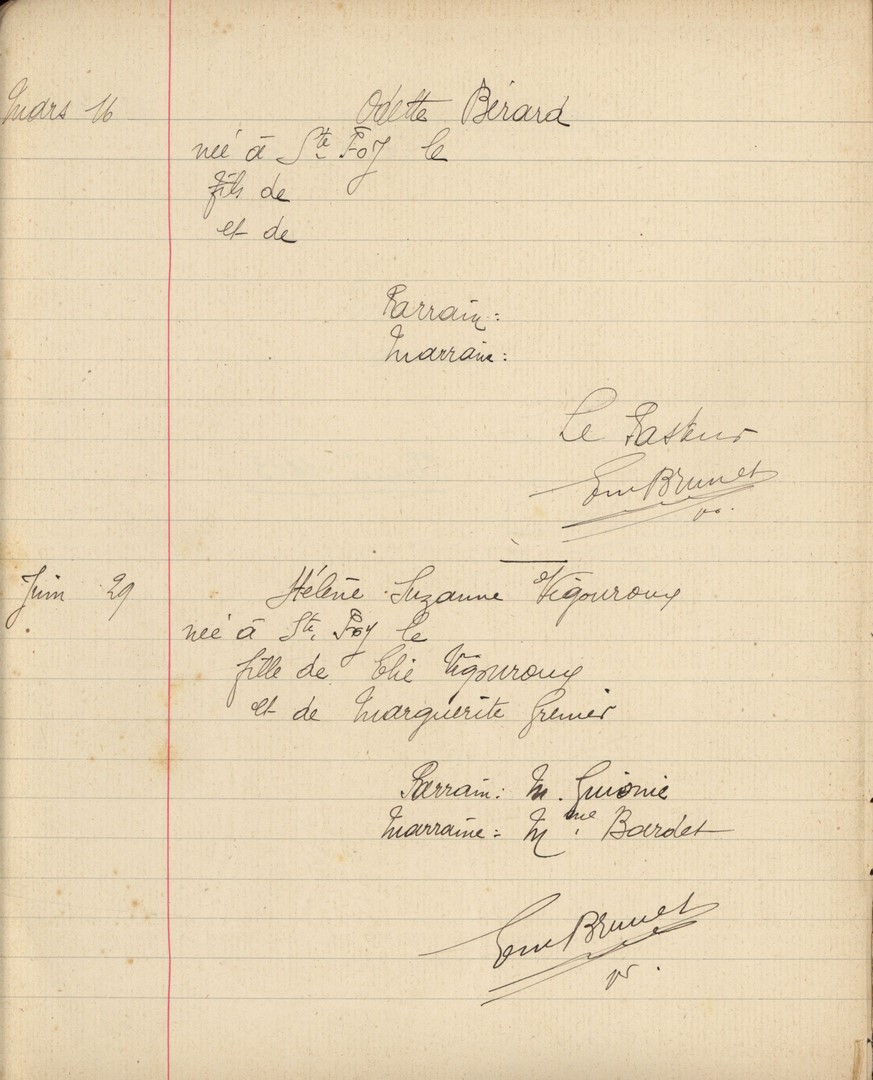 Mars 16 Odette Bérard
née à Ste Foy le
fils de
et de
Parrain :
Marraine :
Le Pasteur
Em Brunet
ps.
Juin 29 Hélène Suzanne Vigouroux
née à Ste Foy le
fille de Elie Vigouroux
et de Marguerite Grenier
Parrain : M. Guionie
Marraine : Mme Bardet
Em Brunet
ps.